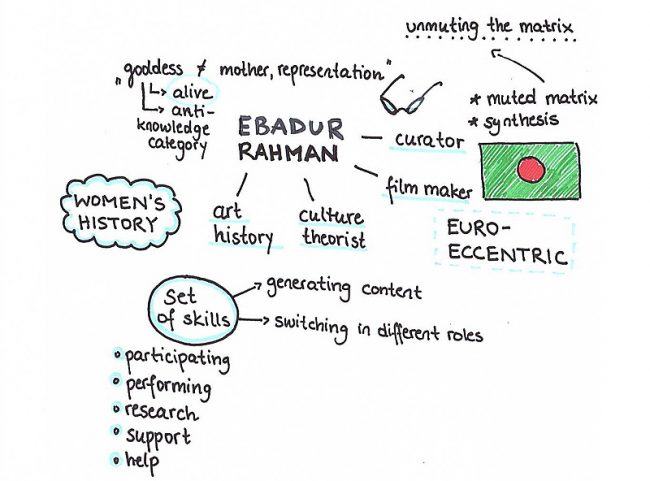 unmuting the matrix
"goddess ≠ mother, representation"
alive
anti-
knowledge
category
* muted matrix
* synthesis
EBADUR
RAHMAN
curator
film maker
art
history
culture
theorist
WOMEN'S
HISTORY
EURO-
ECCENTRIC
Set
of skills
generating content
switching in different roles
• participating
• performing
• research
• support
• help